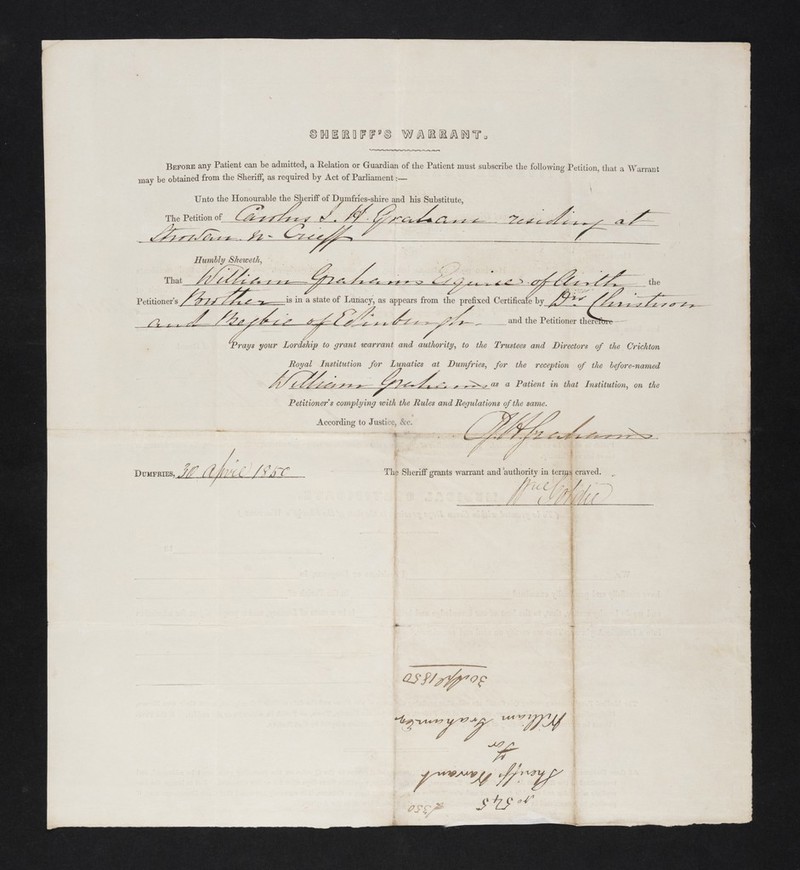 SHERIFF'S WARRANT.
BEFORE any Patient can be admitted, a Relation or Guardian of the Patient must subscribe the following Petition, that a Warrant
may be obtained from the Sheriff, as required by Act of Parliament:—
Unto the Honourable the Sheriff of Dumfries-shire and his Substitute,
The Petition of Carolus J. H. Graham residing at
Strowan by Crieff
Humbly Sheweth,
That William Graham Esquire of Airth the
Petitioner's Brother is in a state of Lunacy, as appears from the prefixed Certificate by Drs Christison
and Begbie of Edinburgh. and the Petitioner therefore
Prays your Lordship to grant warrant and authority, to the Trustees and Directors of the Crichton
Royal Institution for Lunatics at Dumfries, for the reception of the before-named
William Graham as a Patient in that Institution, on the
Petitioner's complying with the Rules and Regulations of the same.
According to Justice, &c.
Graham
DUMFRIES, 30 April 1850 The Sheriff grants warrant and authority in terms craved.
No 545 £350
Sheriffs Warrant
For
William Graham Esq
30 Apl 1850